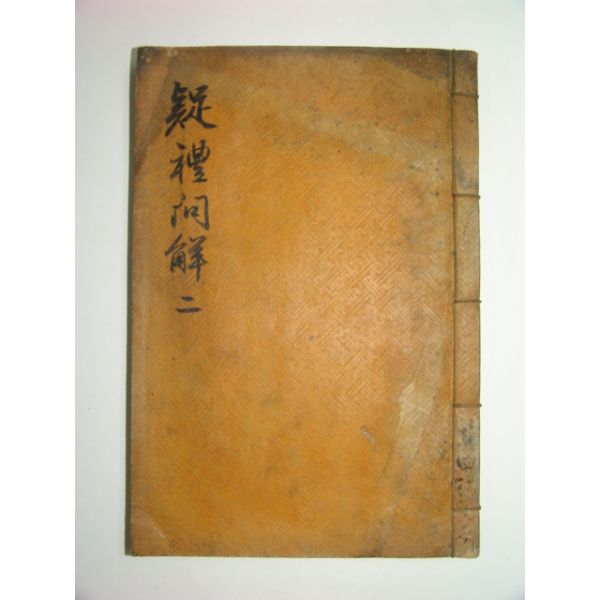 疑禮問解 二